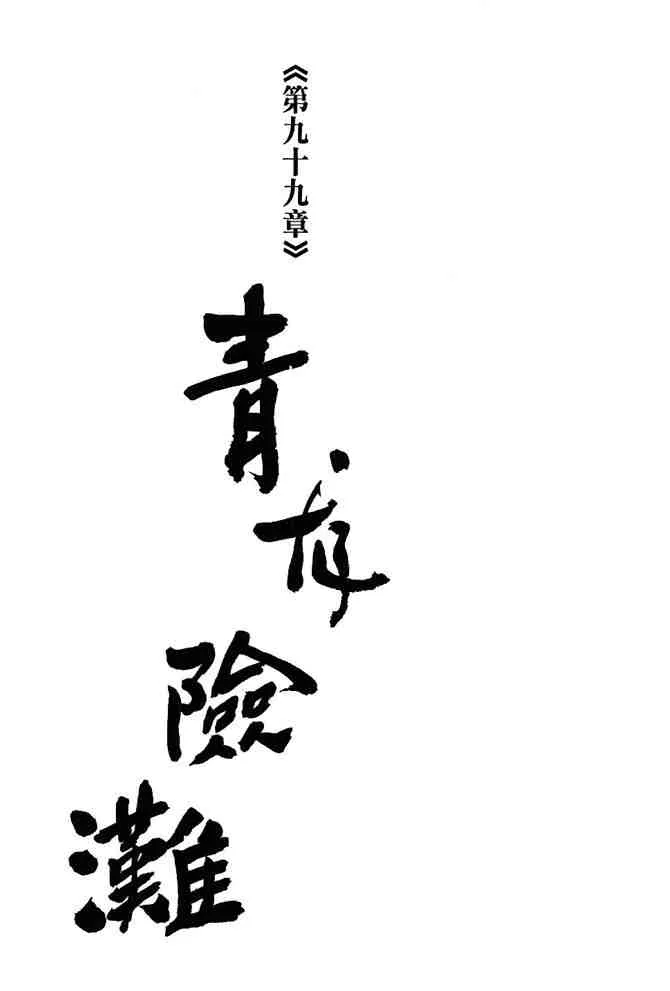 《第九十九章》
青
險
灘